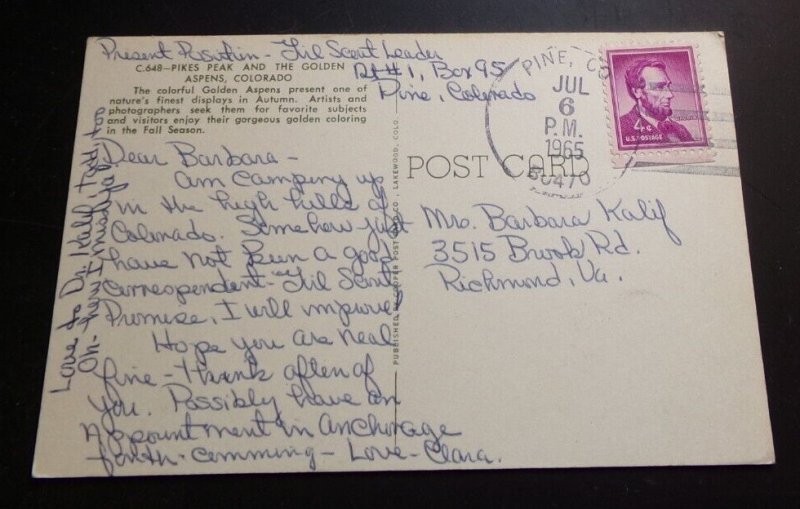 Present Position - Girl Scout Leader
Rt #1, Box 95
Pine, Colorado
C.648—PIKES PEAK AND THE GOLDEN
ASPENS, COLORADO
The colorful Golden Aspens present one of
nature's finest displays in Autumn. Artists and
photographers seek them for favorite subjects
and visitors enjoy their gorgeous golden coloring
in the Fall Season.
Dear Barbara -
Am camping up
in the high hills of
Colorado. Somehow just
have not been a good
correspondent - Girl Scout
Promise, I will improve
Hope you are real
fine - Think often of
you. Possibly have an
Appointment in Anchorage
forth-comming - Love - Clara.
Love to Dr. Kalif, Todd, too
Oh - how I miss
PUBLISHED BY COOPER POST CARD CO., LAKEWOOD, COLO.
POST CARD
PINE, CO
JUL
6
P.M.
1965
80470
4¢
U.S. POSTAGE
Mrs. Barbara Kalif
3515 Brook Rd.
Richmond, Va.